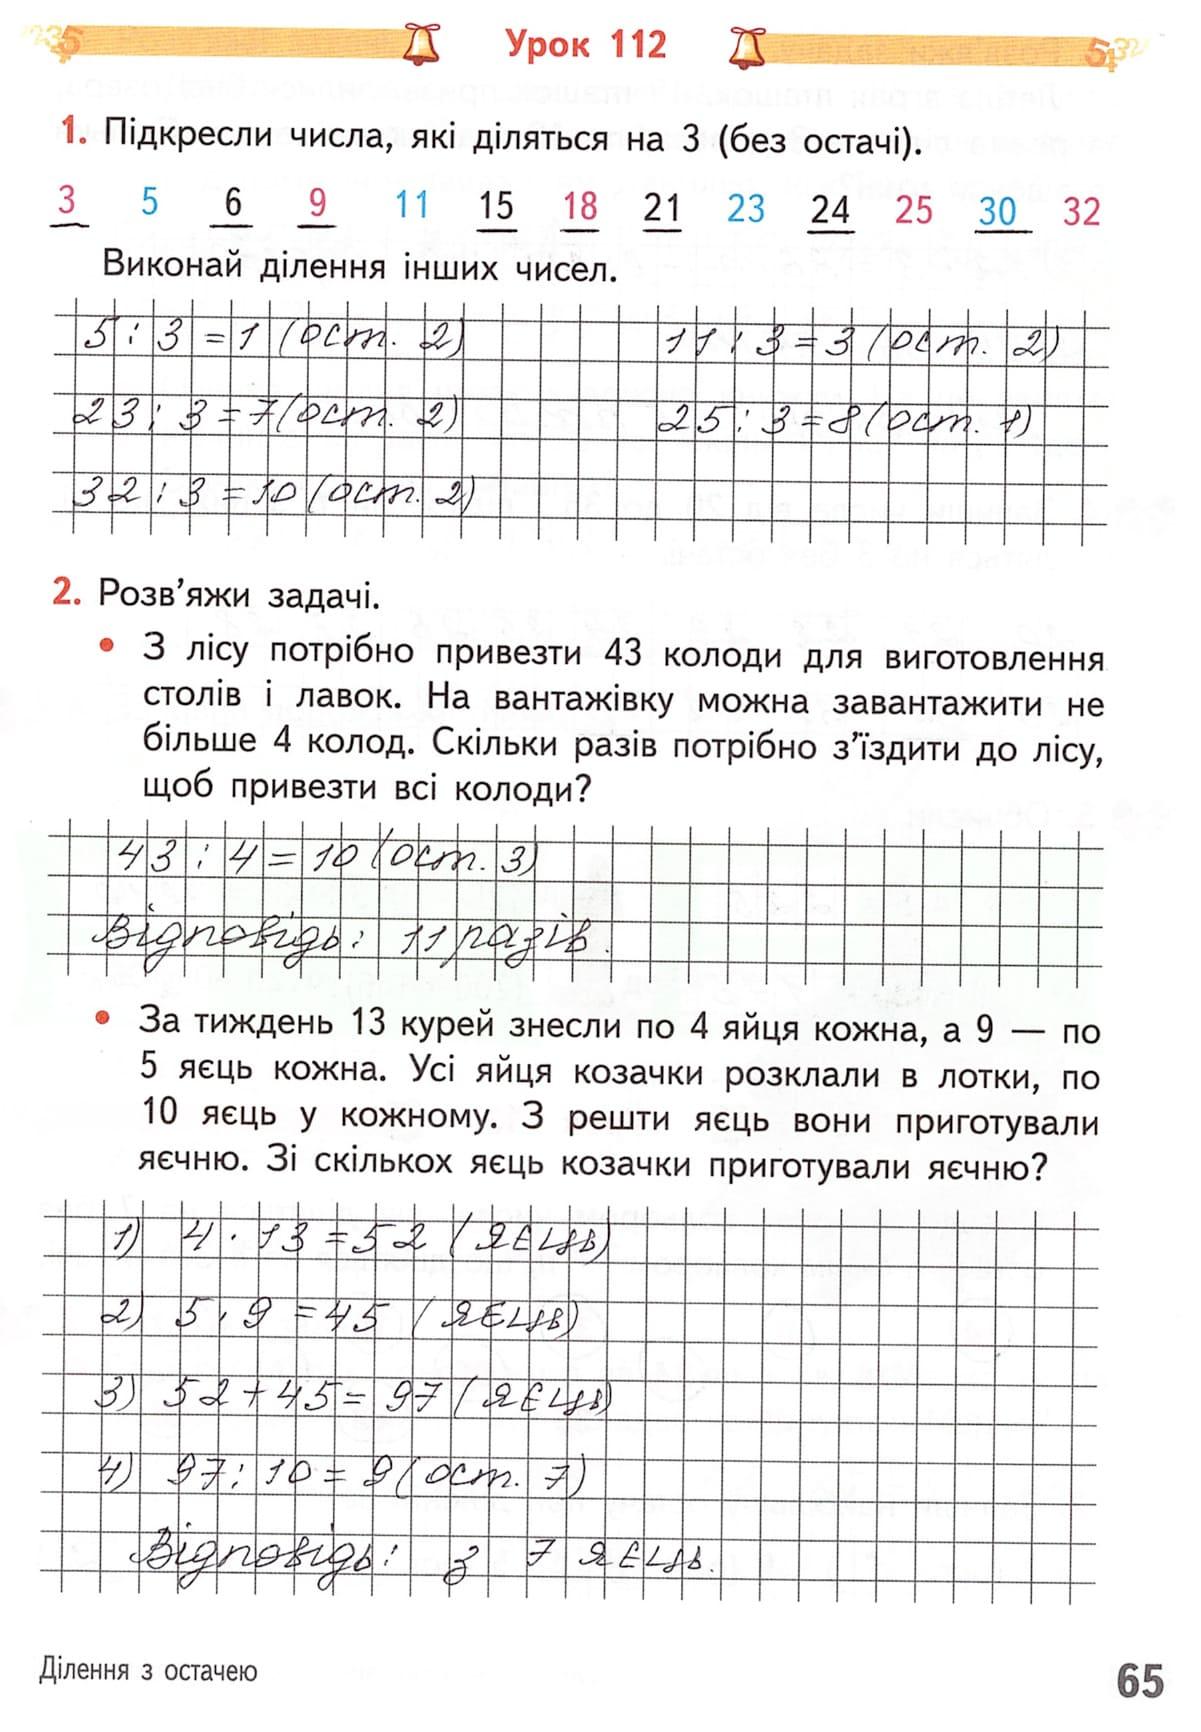 Урок 112
1. Підкресли числа, які діляться на 3 (без остачі).
3 5 6 9 11 15 18 21 23 24 25 30 32
Виконай ділення інших чисел.
5 : 3 = 1 (ост. 2) 11 : 3 = 3 (ост. 2)
23 : 3 = 7 (ост. 2) 25 : 3 = 8 (ост. 1)
32 : 3 = 10 (ост. 2)
2. Розв’яжи задачі.
• З лісу потрібно привезти 43 колоди для виготовлення
столів і лавок. На вантажівку можна завантажити не
більше 4 колод. Скільки разів потрібно з’їздити до лісу,
щоб привезти всі колоди?
43 : 4 = 10 (ост. 3)
Відповідь: 11 разів.
• За тиждень 13 курей знесли по 4 яйця кожна, а 9 — по
5 яєць кожна. Усі яйця козачки розклали в лотки, по
10 яєць у кожному. З решти яєць вони приготували
яєчню. Зі скількох яєць козачки приготували яєчню?
1) 4 · 13 = 52 (яєць)
2) 5 · 9 = 45 (яєць)
3) 52 + 45 = 97 (яєць)
4) 97 : 10 = 9 (ост. 7)
Відповідь: з 7 яєць.
Ділення з остачею
65